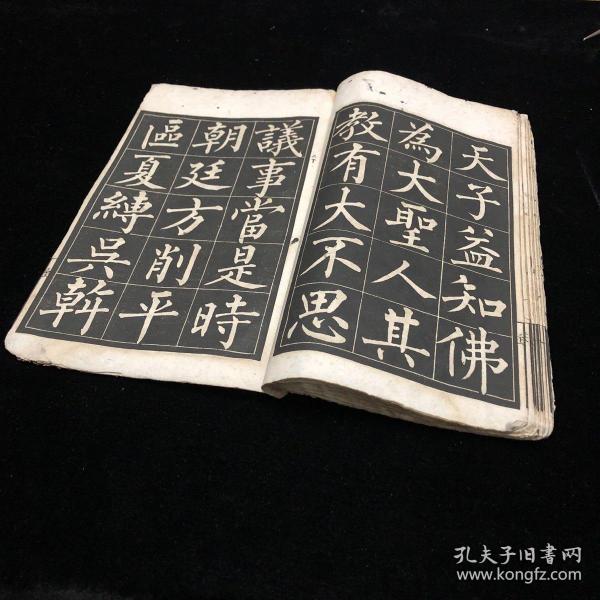 天子益知佛
為大聖人其
教有大不思
議事當是時
朝廷方削平
區夏縛吳斡
孔夫子旧书网
www.kongfz.com